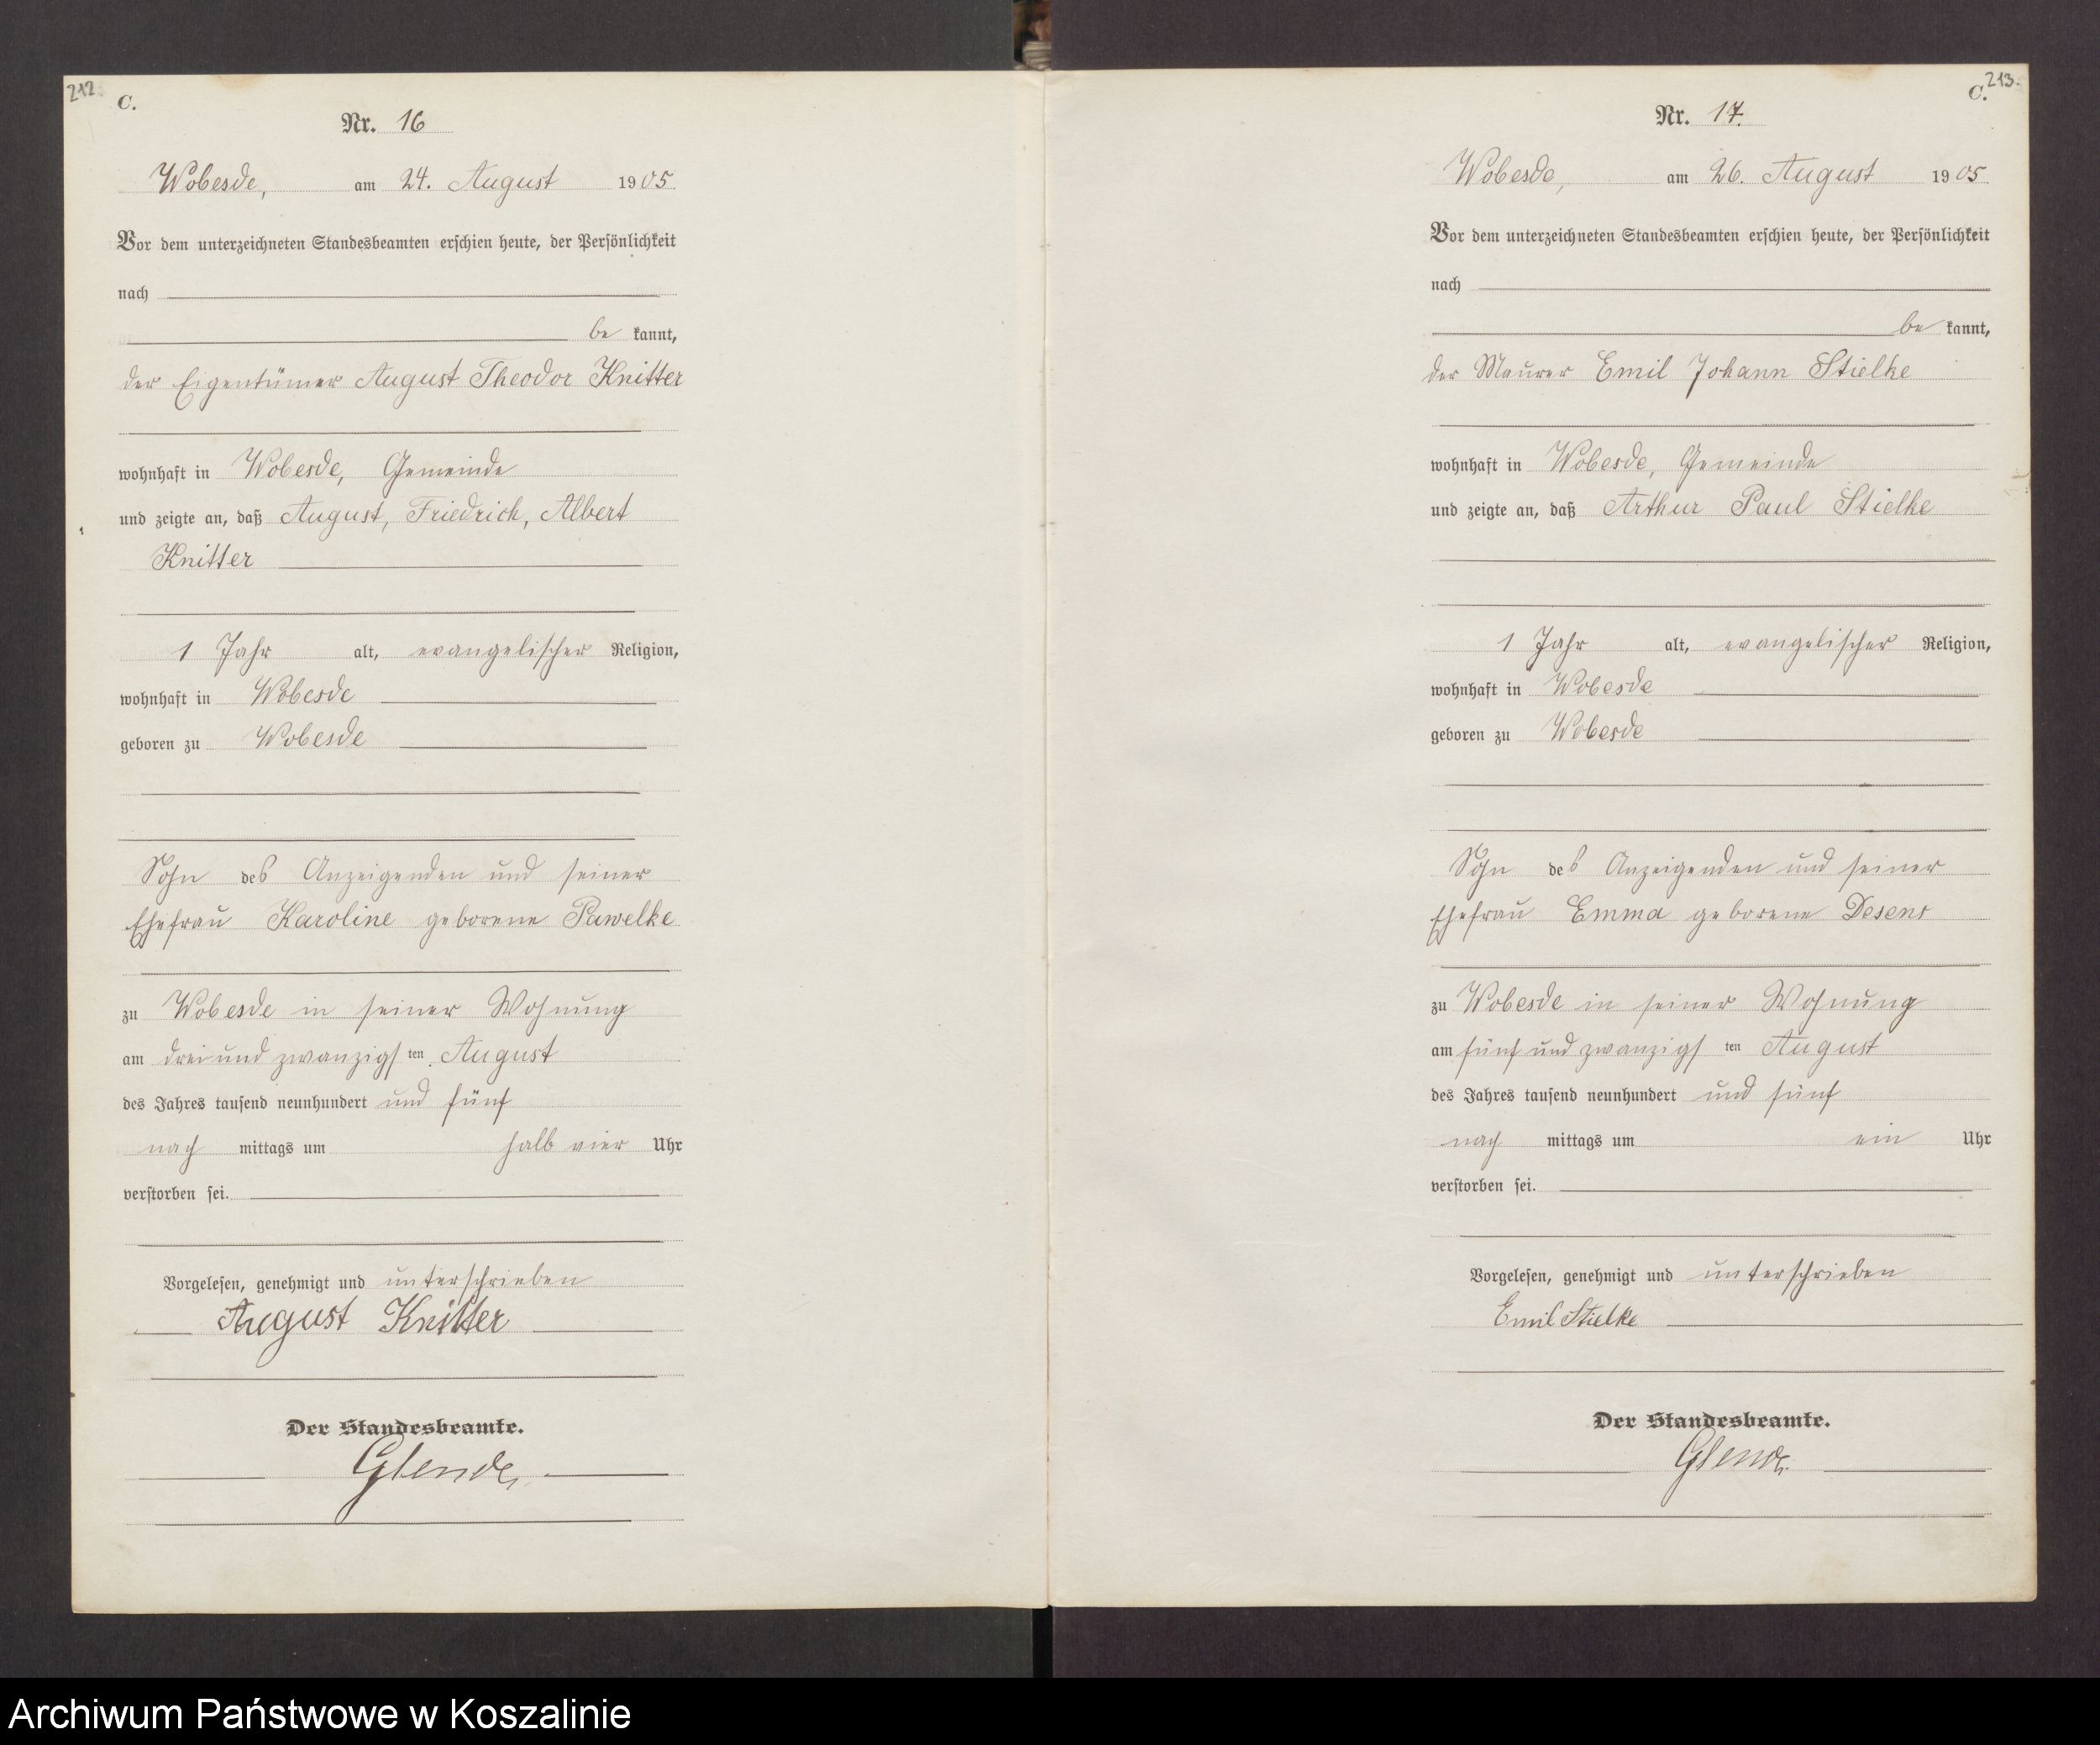 212.
C.
Nr. 16
Wobesde, am 24. August 1905.
Vor dem unterzeichneten Standesbeamten erschien heute, der Persönlichkeit
nach
be kannt,
der Eigentümer August Theodor Knitter
wohnhaft in Wobesde, Gemeinde
und zeigte an, daß August, Friedrich, Albert
Knitter
1 Jahr alt, evangelischer Religion,
wohnhaft in Wobesde
geboren zu Wobesde
Sohn des Anzeigenden und seiner
Ehefrau Karoline geborene Pawelke
zu Wobesde in seiner Wohnung
am drei und zwanzigsten August
des Jahres tausend neunhundert und fünf
nach mittags um halb vier Uhr
verstorben sei.
Vorgelesen, genehmigt und unterschrieben
August Knitter
Der Standesbeamte.
213.
C.
Nr. 17.
Wobesde, am 26. August 1905.
Vor dem unterzeichneten Standesbeamten erschien heute, der Persönlichkeit
nach
be kannt,
der Maurer Emil Johann Stielke
wohnhaft in Wobesde, Gemeinde
und zeigte an, daß Arthur Paul Stielke
1 Jahr alt, evangelischer Religion,
wohnhaft in Wobesde
geboren zu Wobesde
Sohn des Anzeigenden und seiner
Ehefrau Emma geborene Desens
zu Wobesde in seiner Wohnung
am fünf und zwanzigsten August
des Jahres tausend neunhundert und fünf
nach mittags um ein Uhr
verstorben sei.
Vorgelesen, genehmigt und unterschrieben
Emil Stielke
Der Standesbeamte.
Archiwum Państwowe w Koszalinie